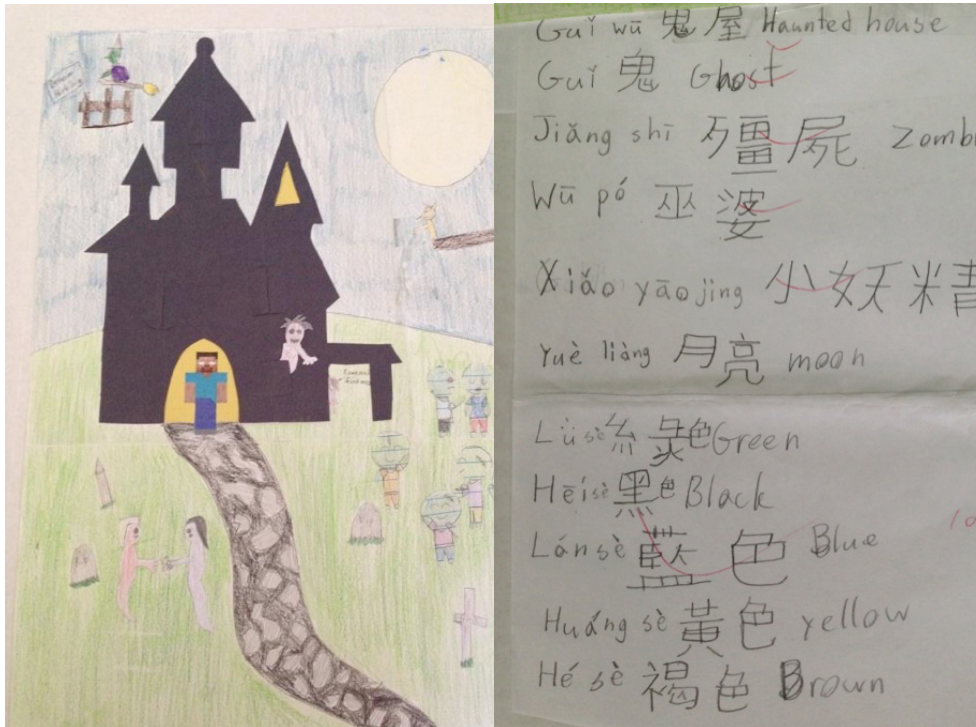 Guǐ wū 鬼屋 Haunted house
Guǐ 鬼 Ghost
Jiǎng shī 殭屍 Zombi
Wū pó 巫婆
Xiǎo yāo jing 小妖精
Yuè liàng 月亮 moon
Lǜ sè 綠色 Green
Hēi sè 黑色 Black
Lán sè 藍色 Blue
Huáng sè 黃色 yellow
Hé sè 褐色 Brown